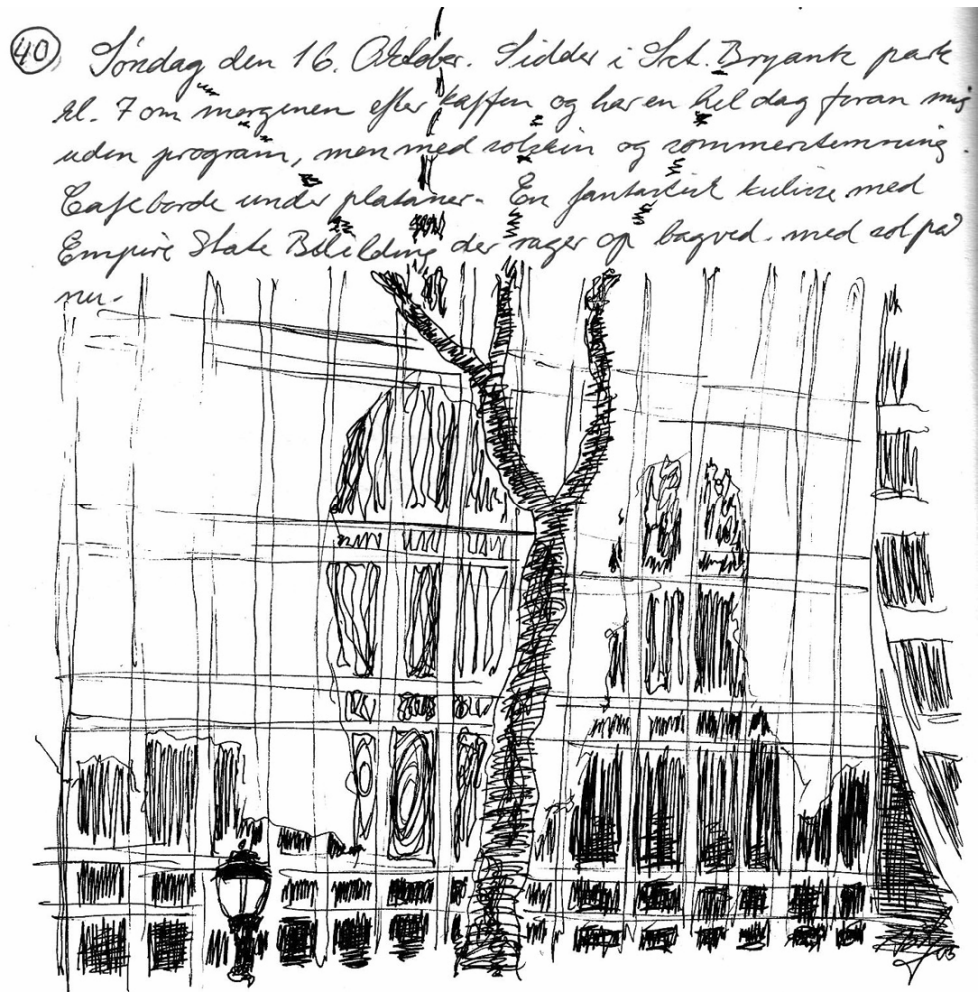 40 Søndag den 16. Oktober. Sidder i Skt. Bryants park
kl. 7 om morgenen efter kaffen og har en hel dag foran mig
uden program, men med solskin og sommerstemning.
Cafeborde under plataner. En fantastisk kulisse med
Empire State Building der rager op bagved. med sol på
nu.
05